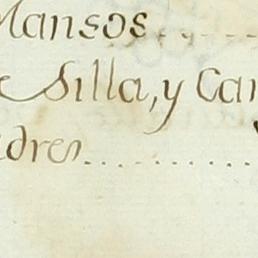 Mansos
e Silla, y Car
adres